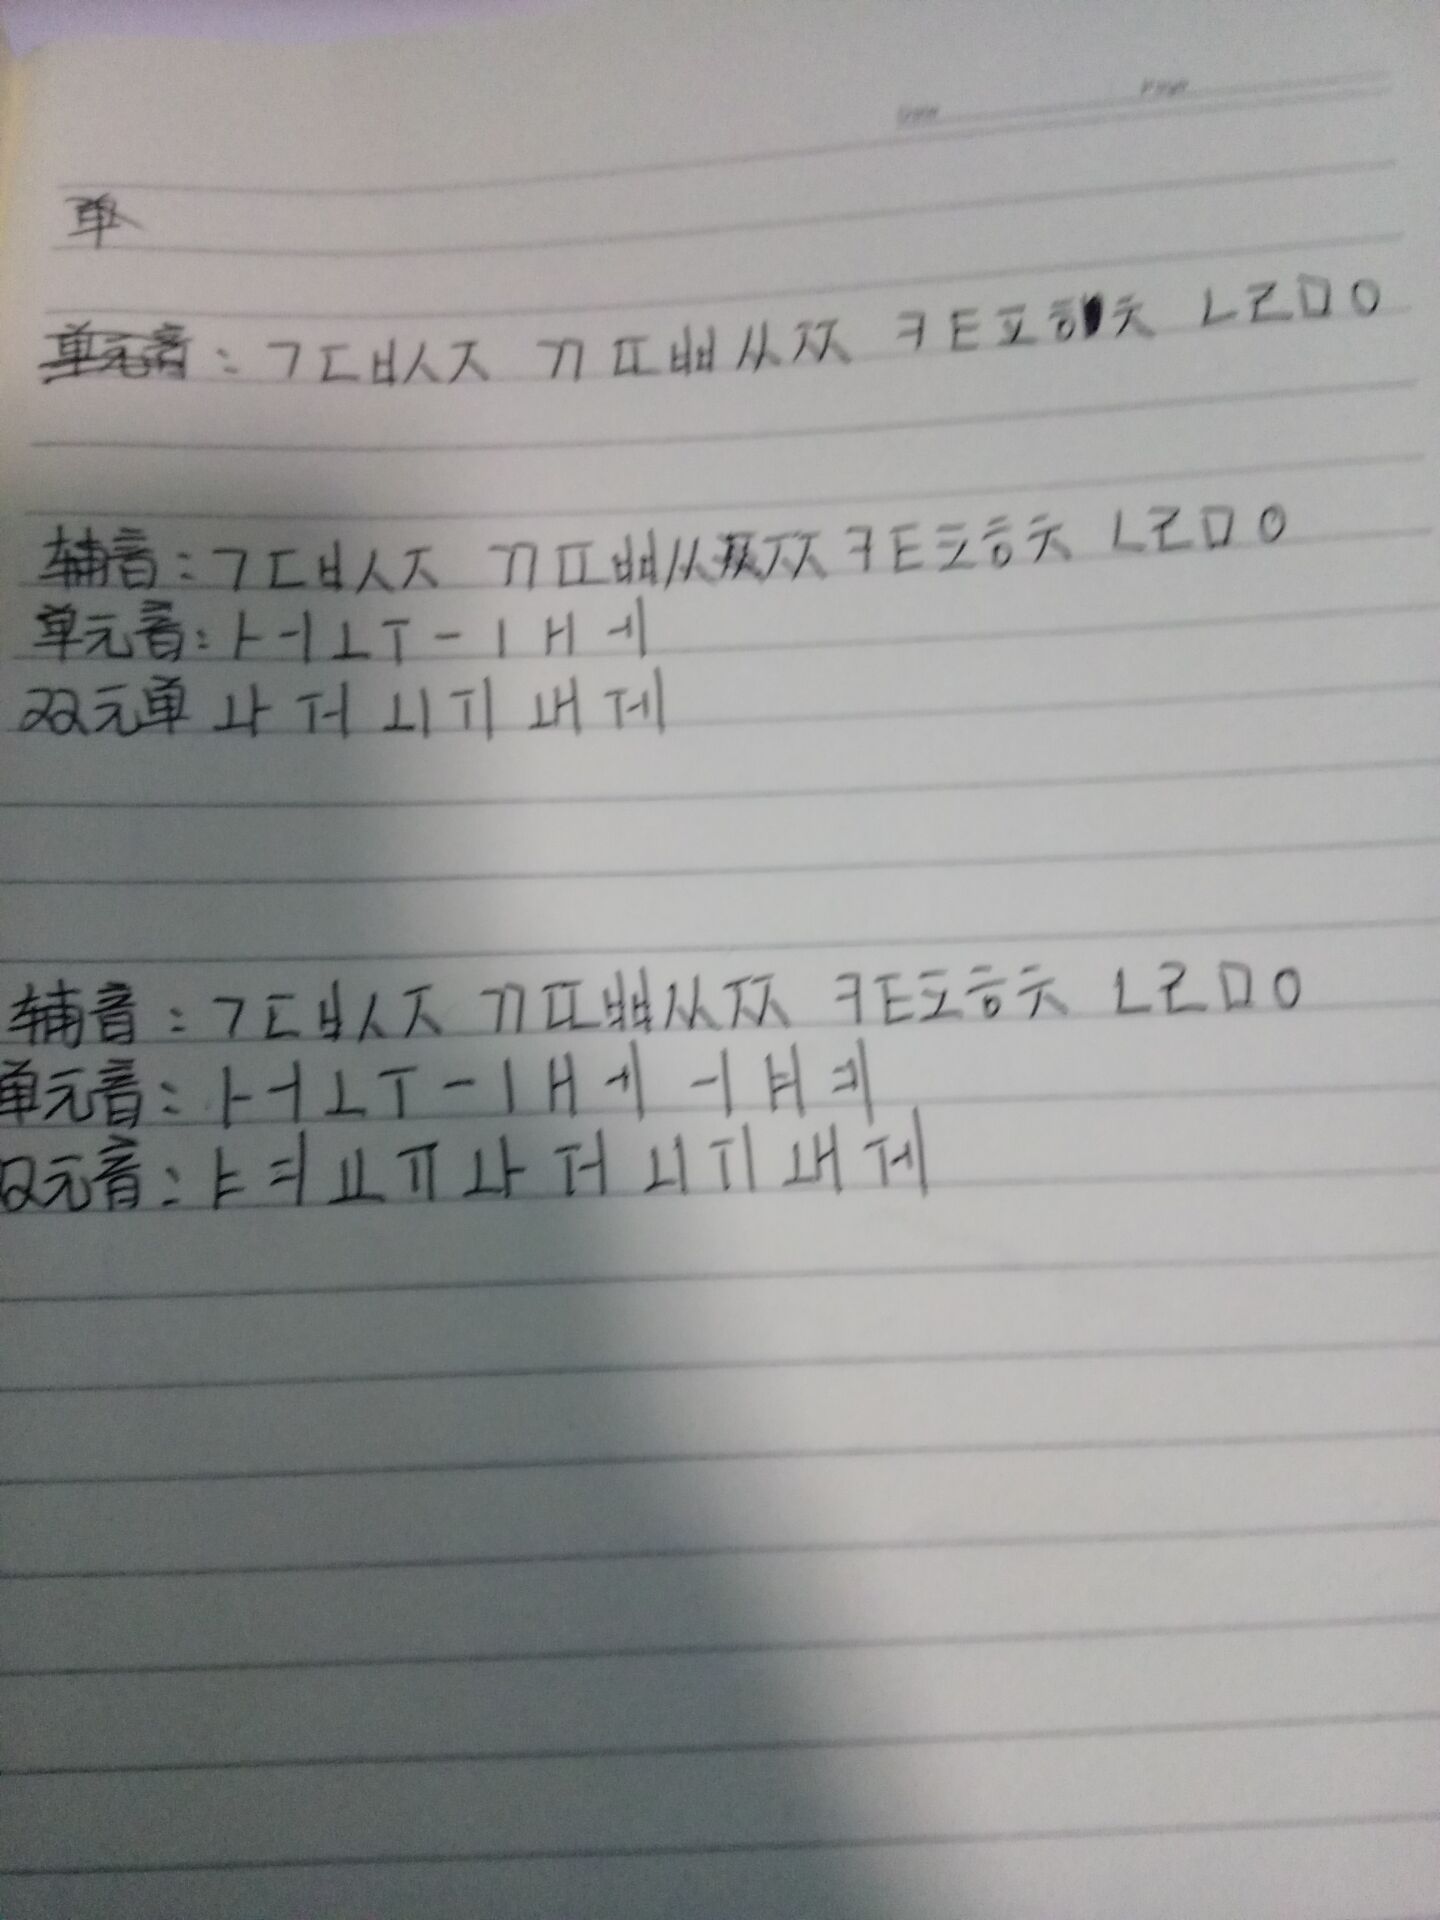 Date Page
单
单元音：ㄱㄷㅂㅅㅈ ㄲㄸㅃㅆㅉ ㅋㅌㅍㅎㅊ ㄴㄹㅁㅇ
辅音：ㄱㄷㅂㅅㅈ ㄲㄸㅃㅆㅉ ㅋㅌㅍㅎㅊ ㄴㄹㅁㅇ
单元音：ㅏㅓㅗㅜㅡㅣㅐㅔ
双元单 ㅘ ㅝ ㅚ ㅟ ㅙ ㅞ
辅音：ㄱㄷㅂㅅㅈ ㄲㄸㅃㅆㅉ ㅋㅌㅍㅎㅊ ㄴㄹㅁㅇ
单元音：ㅏㅓㅗㅜㅡㅣㅐㅔ ㅢ ㅒ ㅖ
双元音：ㅑㅕㅛㅠㅘ ㅝ ㅚ ㅟ ㅙ ㅞ